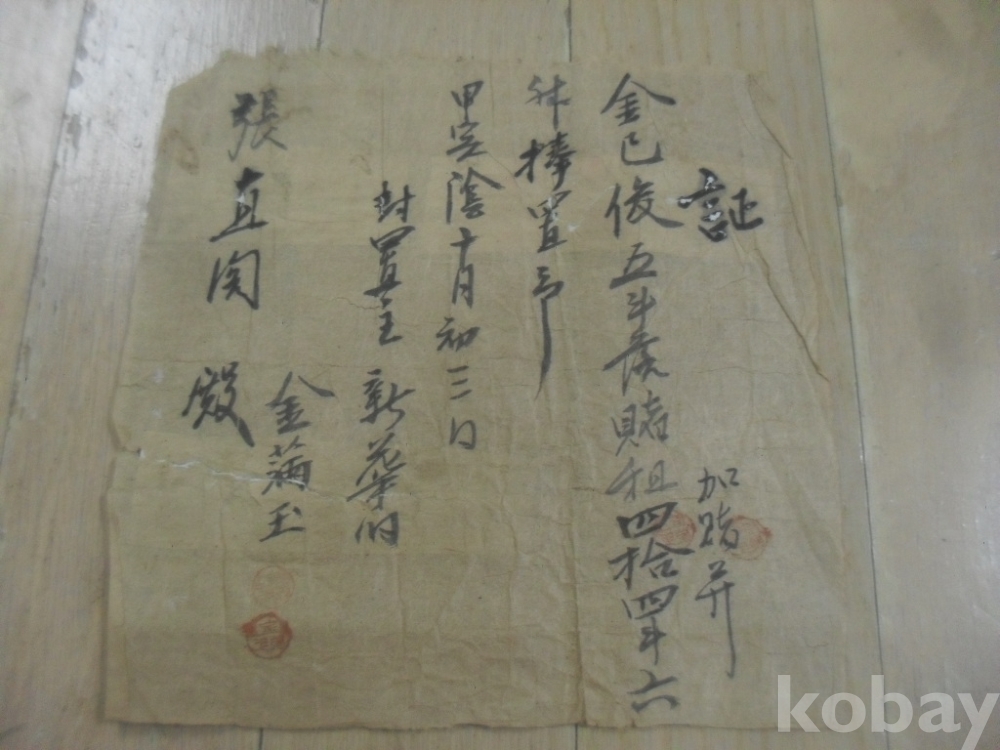 証
加賭并
金已俊五斗落賭租四拾四斗六
升捧置
甲寅陰十月初三日
封置主 新華
金蒲玉
張直 殿
kobay